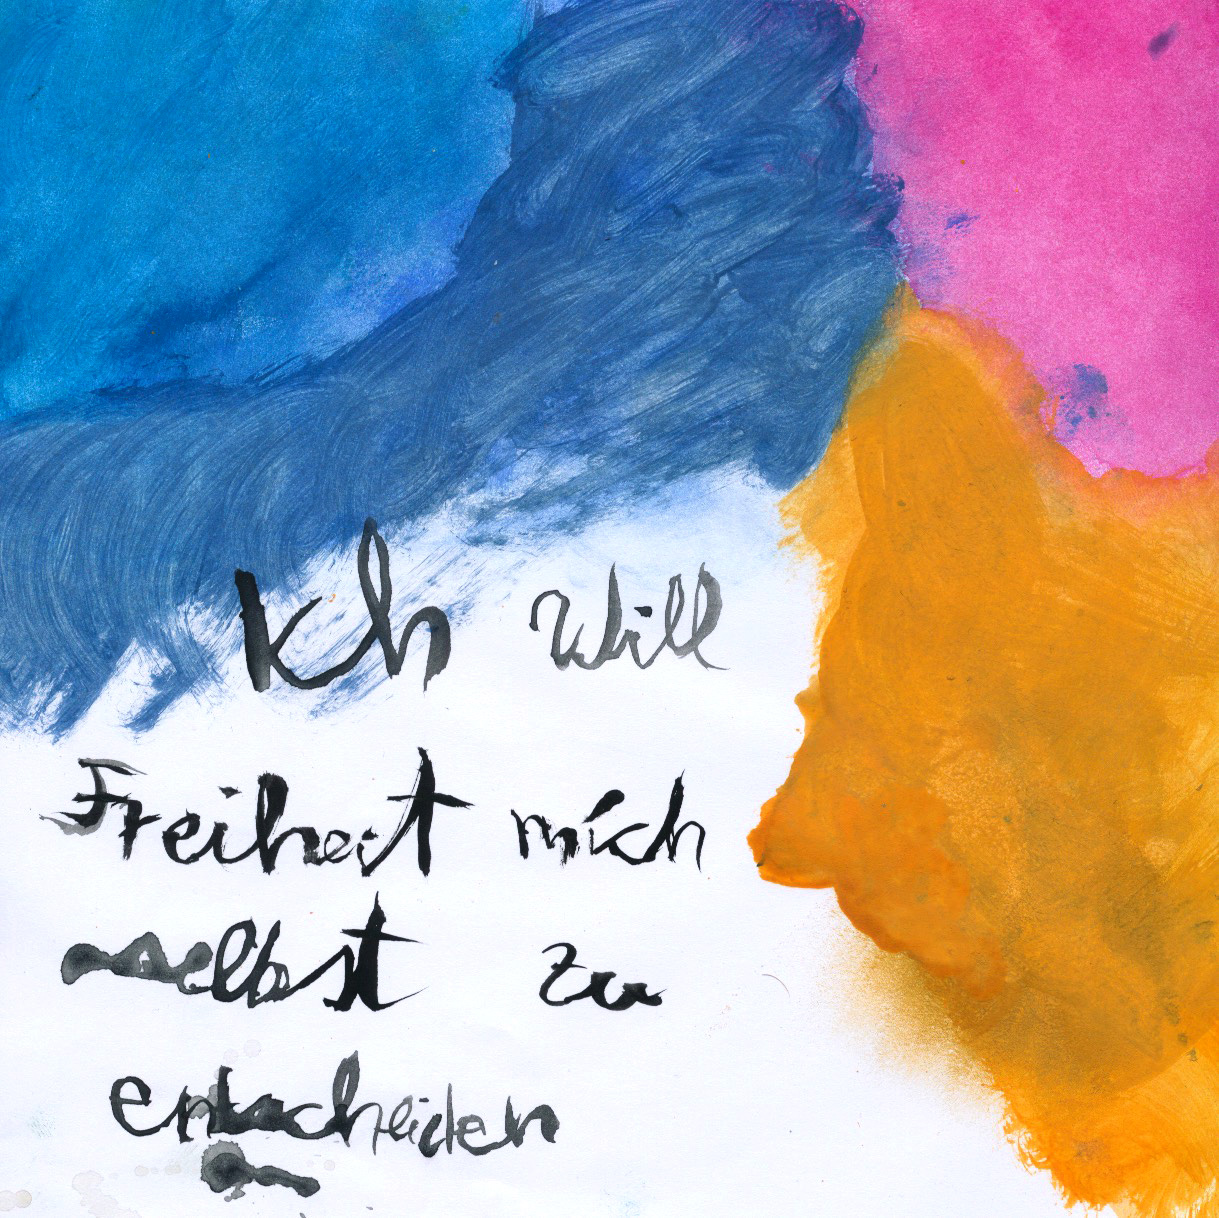 Ich will
Freiheit mich
selbst zu
entscheiden